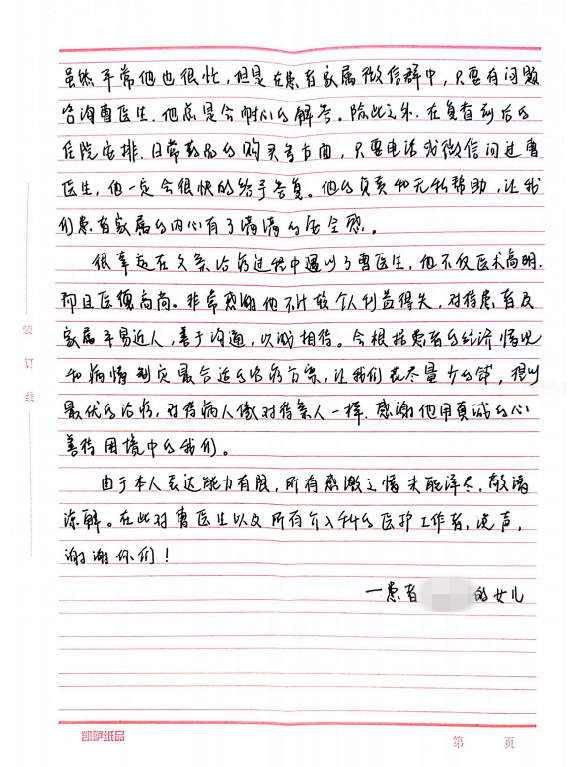 虽然平常他也很忙，但是在患者家属微信群中，只要有问题
咨询曹医生，他总是会耐心的解答。除此之外，在复查到后的
住院安排、日常药品的购买等方面，只要电话或微信问过曹
医生，他一定会很快的给予答复。他的负责和无私帮助，让我
们患者家属的内心有了满满的安全感。
很幸运在父亲治病过程中遇到了曹医生，他不仅医术高明，
而且医德高尚。非常感谢他不计较个人利益得失，对待患者及
家属平易近人，善于沟通，以诚相待。会根据患者的经济情况
和病情制定最合适的治疗方案，让我们花尽量少的钱，得到
最优的治疗，对待病人像对待亲人一样，感谢他用真诚的心
善待困境中的我们。
由于本人表达能力有限，所有感激之情未能详尽，敬请
谅解。在此对曹医生以及所有介入科的医护工作者，说声，
谢谢你们！
一患者
的女儿
装
订
线
凯萨纸品
第 页